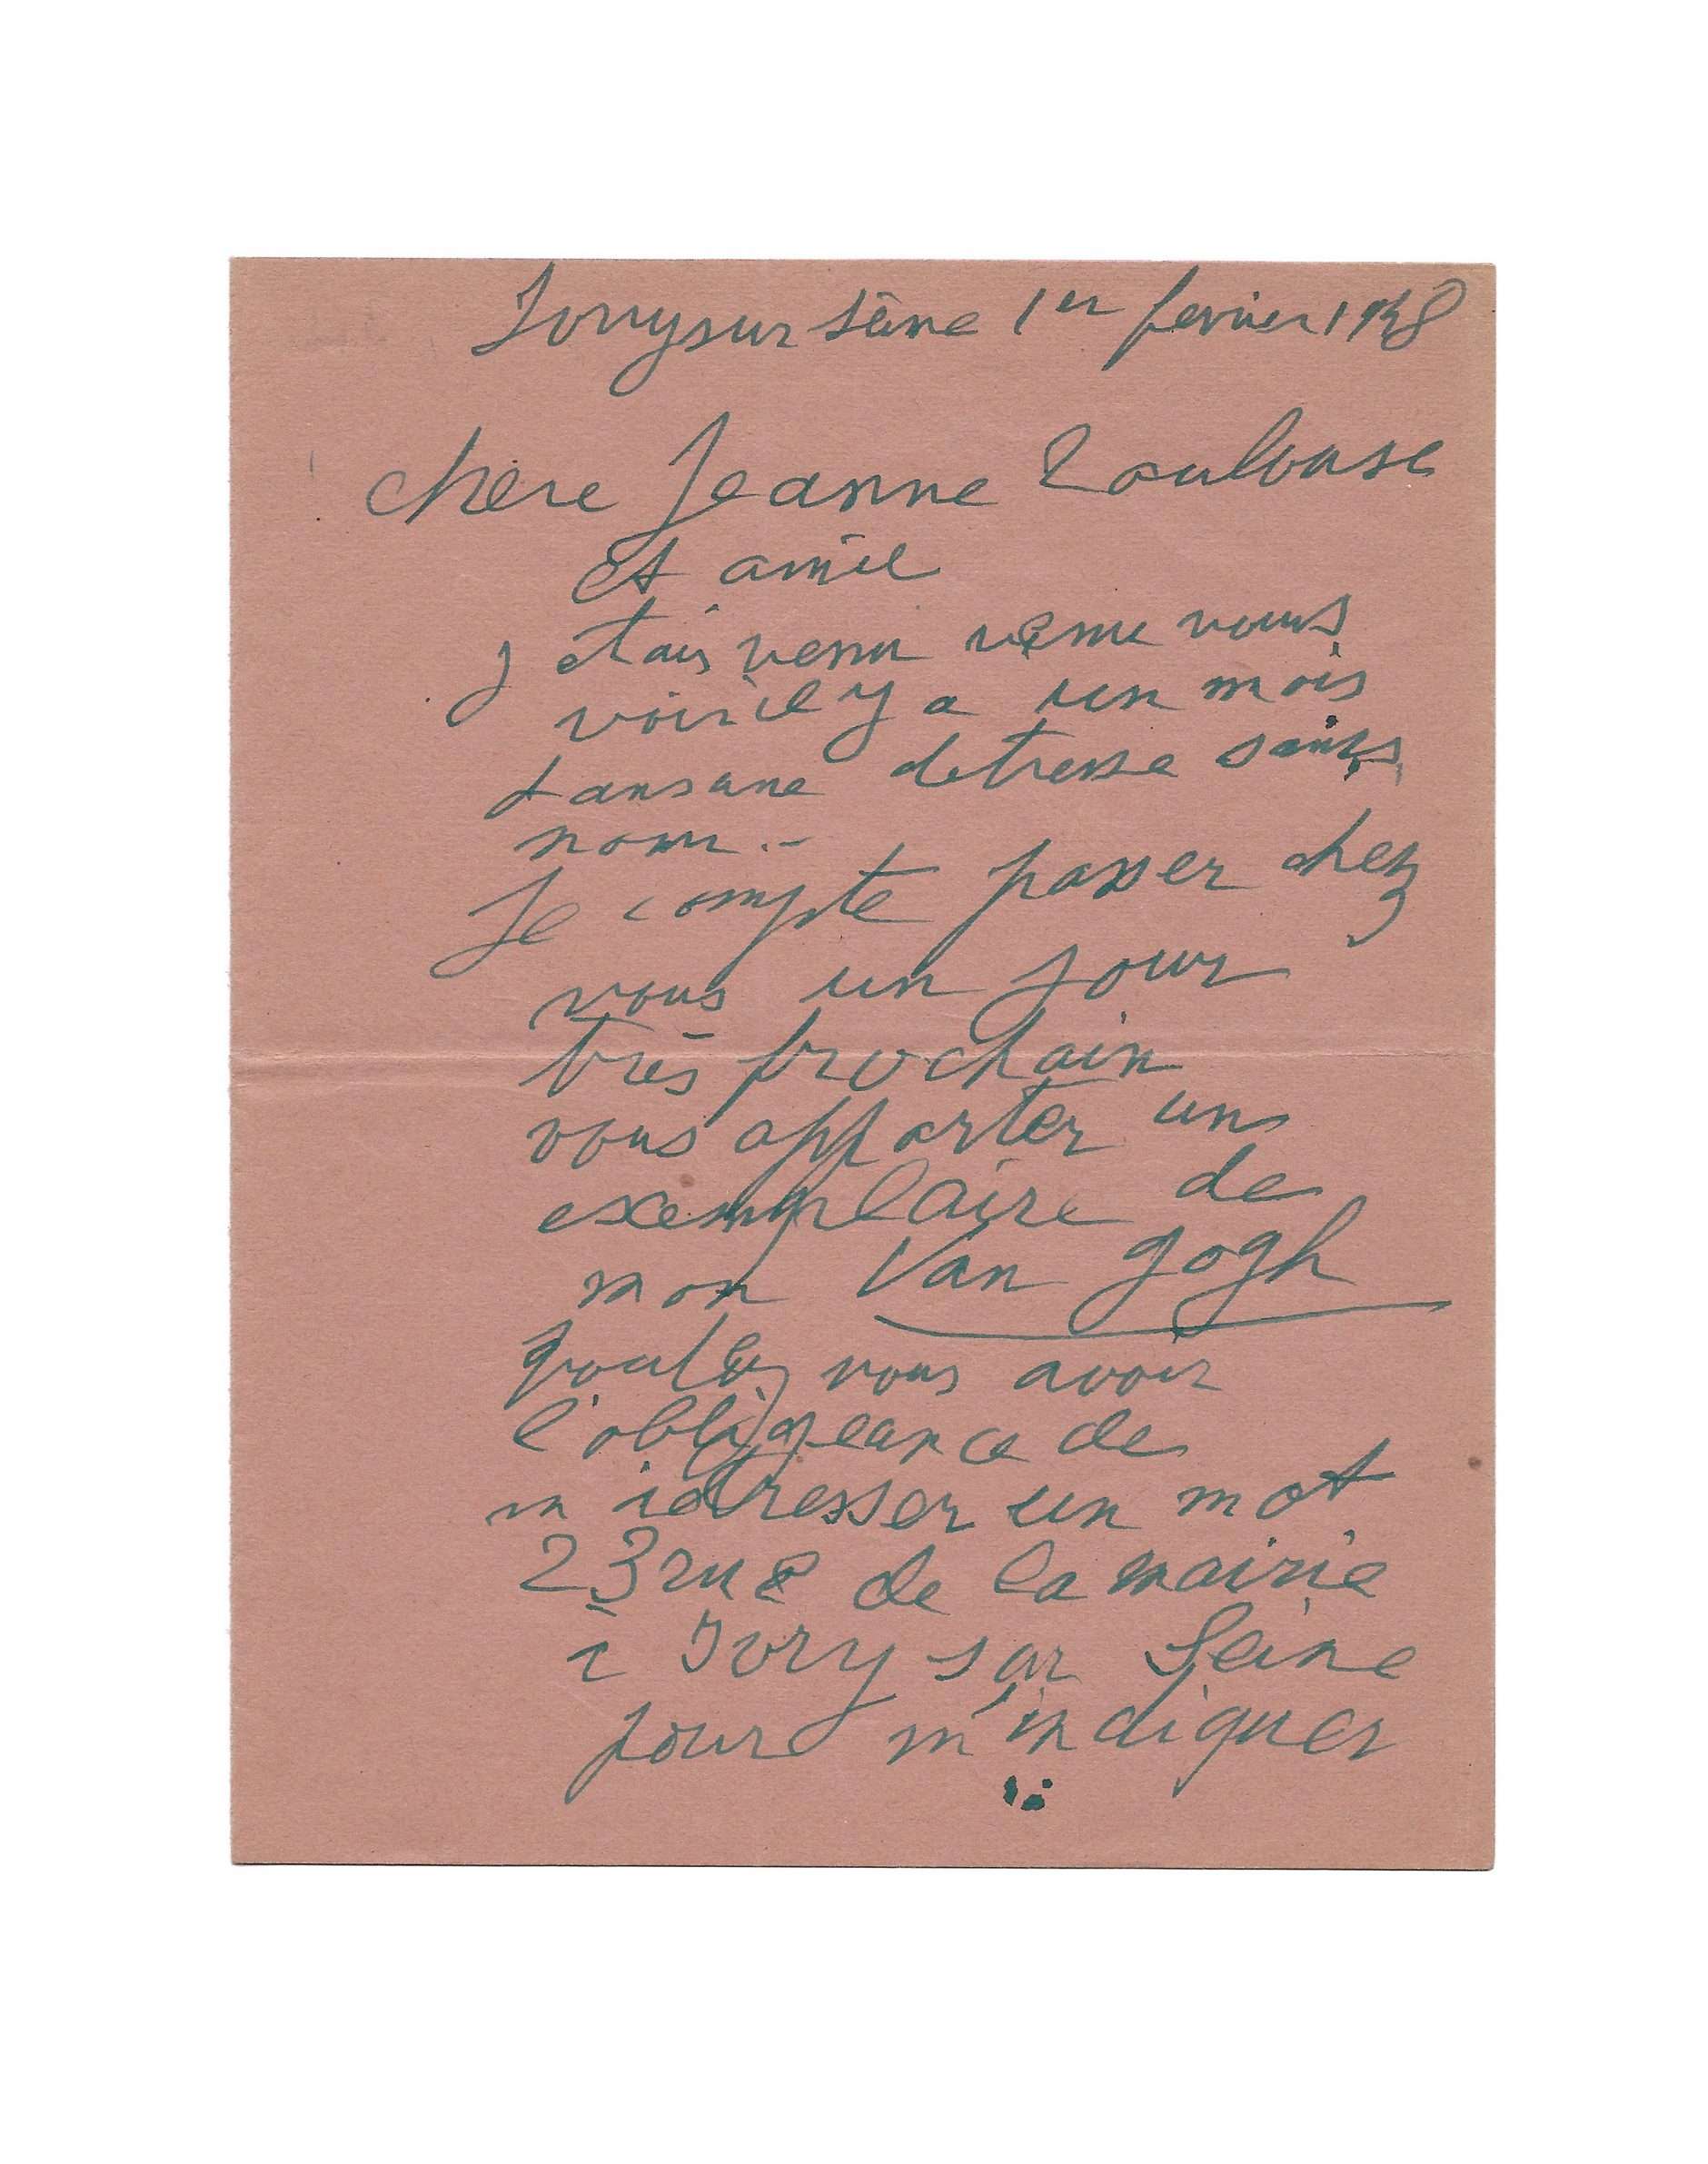 Ivry sur Seine 1er fevrier 1948
chere Jeanne Toulouse
et amie
j etais venu venu vous
voir il y a un mois
dans une detresse sans
nom. -
Je compte passer chez
vous un jour
très prochain
vous apporter un
exemplaire de
mon Van Gogh
voulez vous avoir
l'obligeance de
m adresser un mot
23 rue de la mairie
à Ivry sur Seine
pour m'indiquer